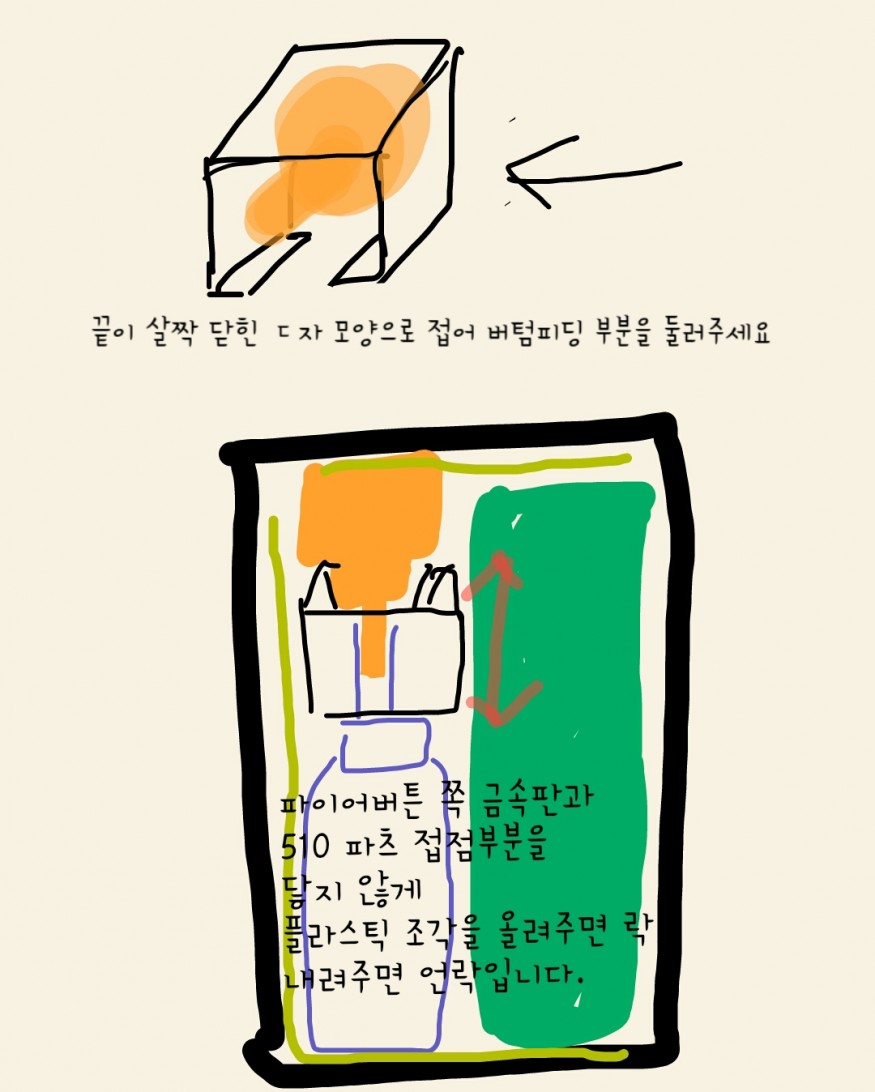 끝이 살짝 닫힌 ㄷ자 모양으로 접어 버텀피딩 부분을 둘러주세요
파이어버튼 쪽 금속판과
510 파츠 접점부분을
닿지 않게
플라스틱 조각을 올려주면 락
내려주면 언락입니다.